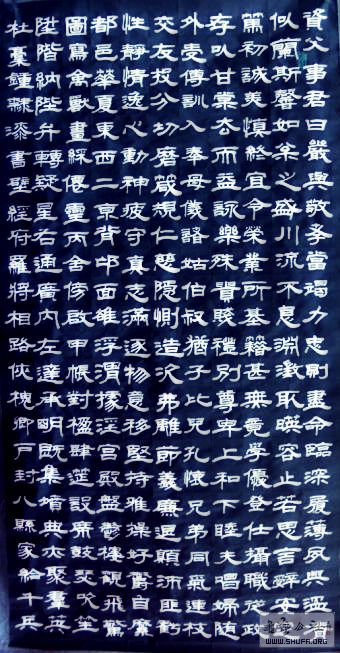 資父事君曰嚴與敬孝當竭力忠則盡命臨深履薄夙興溫凊
似蘭斯馨如松之盛川流不息淵澄取映容止若思言辭安定
篤初誠美慎終宜令榮業所基籍甚無竟學優登仕攝職從政
存以甘棠去而益詠樂殊貴賤禮別尊卑上和下睦夫唱婦隨
外受傅訓入奉母儀諸姑伯叔猶子比兒孔懷兄弟同氣連枝
交友投分切磨箴規仁慈隱惻造次弗離節義廉退顛沛匪虧
性靜情逸心動神疲守真志滿逐物意移堅持雅操好爵自縻
都邑華夏東西二京背邙面雒浮渭據涇宮殿盤鬱樓觀飛驚
圖寫禽獸畫綵僊靈丙舍傍啟甲帳對楹肆筵設席鼓瑟吹笙
陞階納陛弁轉疑星右通廣內左達承明既集墳典亦聚群英
杜稾鍾隸漆書壁經府羅將相路俠槐卿戶封八縣家給千兵
www.SHUFA.com